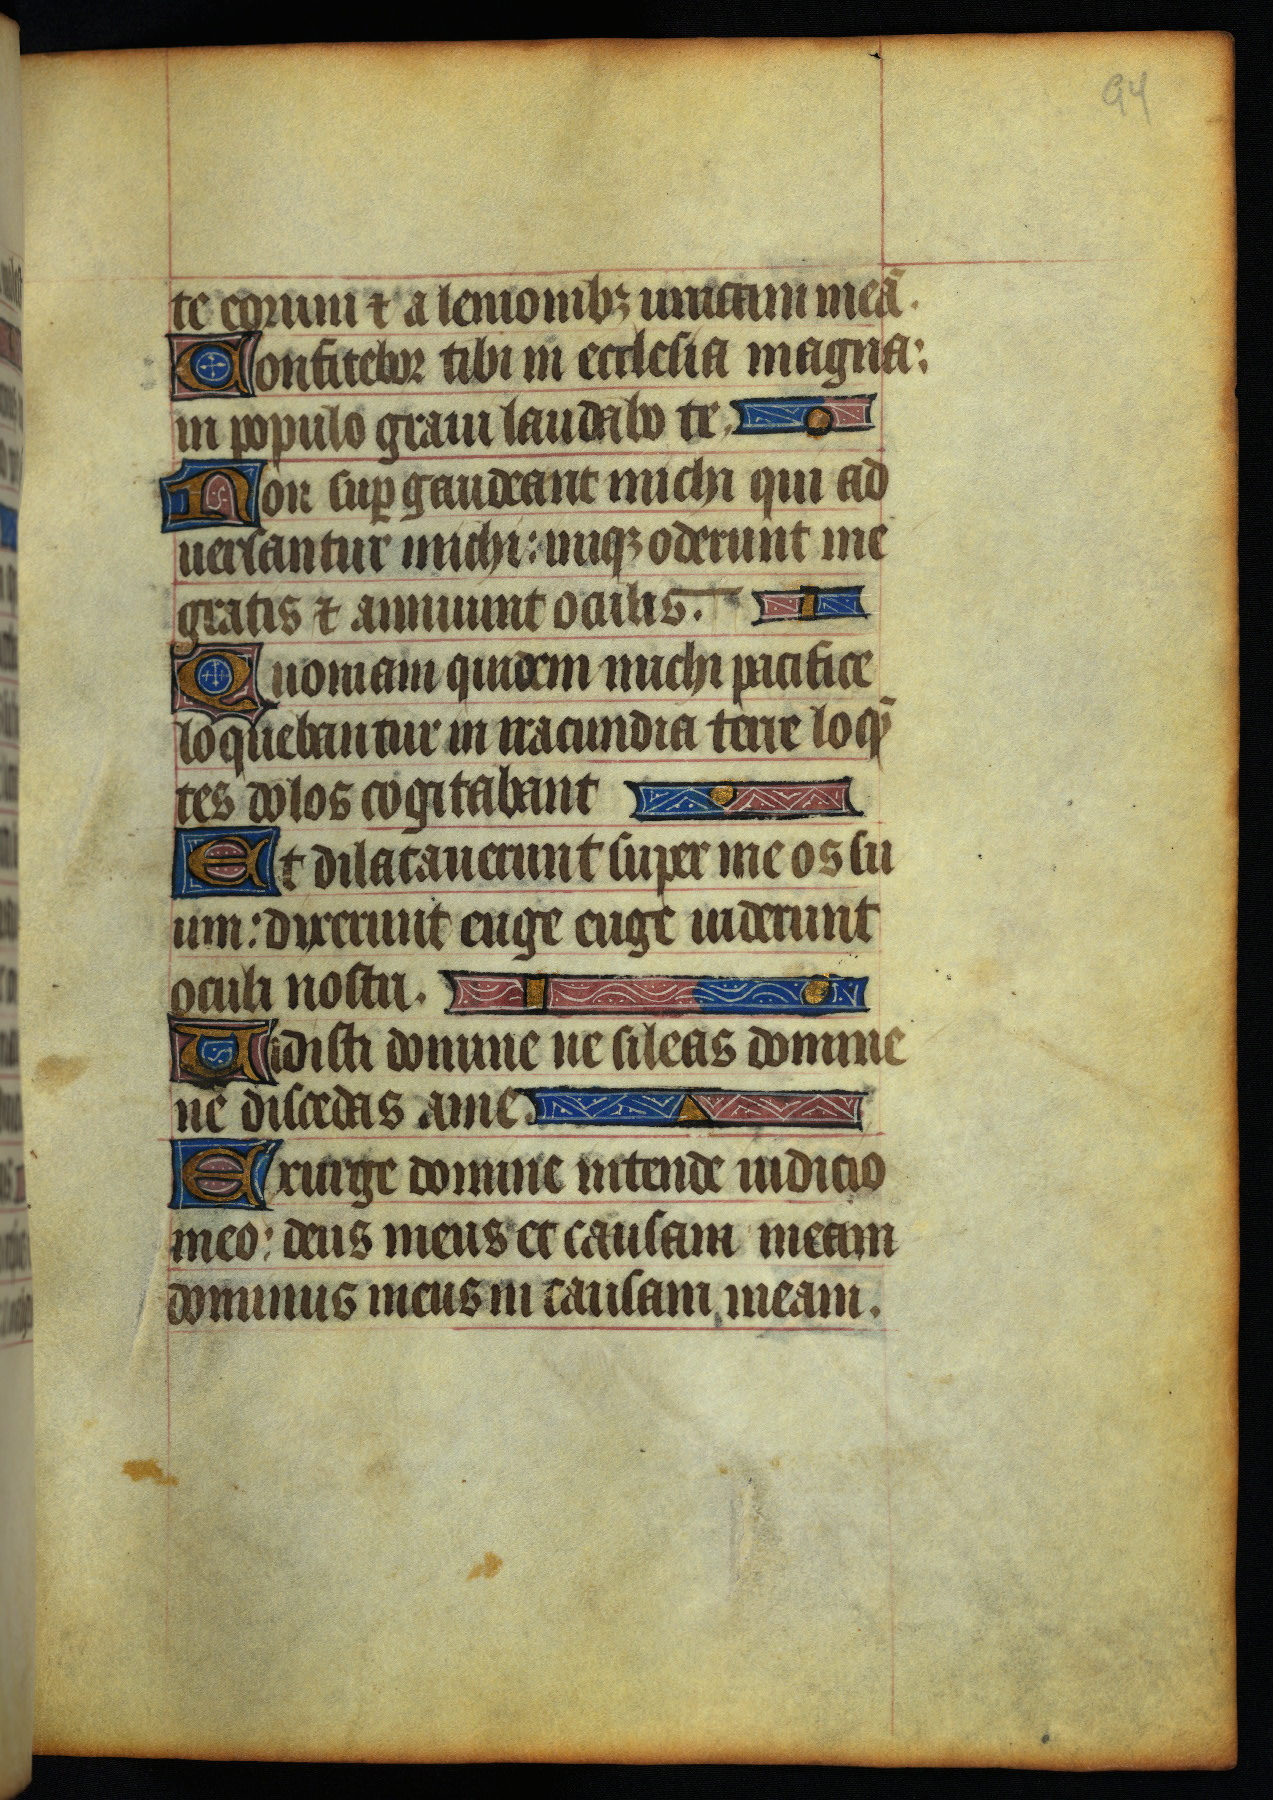 94
te eorum ⁊ a leuionibꝫ unicam meā.
Confitebor tibi in ecclesia magna:
in populo graui laudabo te.
Non suꝑ gaudeant michi qui ad
uersantur michi: iniqꝫ oderunt me
gratis ⁊ annuunt oculis.
Quoniam quidem michi pacifice
loquebantur in iracundia terre loqn̄
tes dolos cogitabant
Et dilatauerunt super me os su
um: dixerunt euge euge uiderunt
oculi nostri.
Uidisti domine ne sileas domine
ne discedas ame.
Exurge domine intende iudicio
meo: deus meus et causam meam
dominus meus in causam meam.